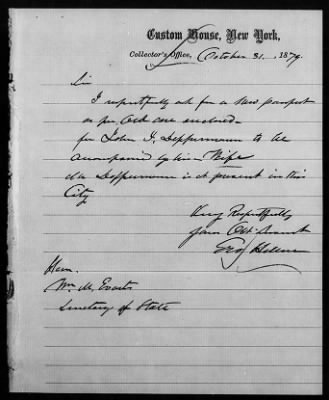 Custom House, New York,
Collector's Office, October 31. 1879.
Sir
I respectfully ask for a New passport
as per Old one enclosed
for John J. Deppermann to be
accompanied by his Wife
Deppermann is at present in this
City
Very Respectfully
Your Obt Servant
Hon.
Wm. M. Evarts
Secretary of State